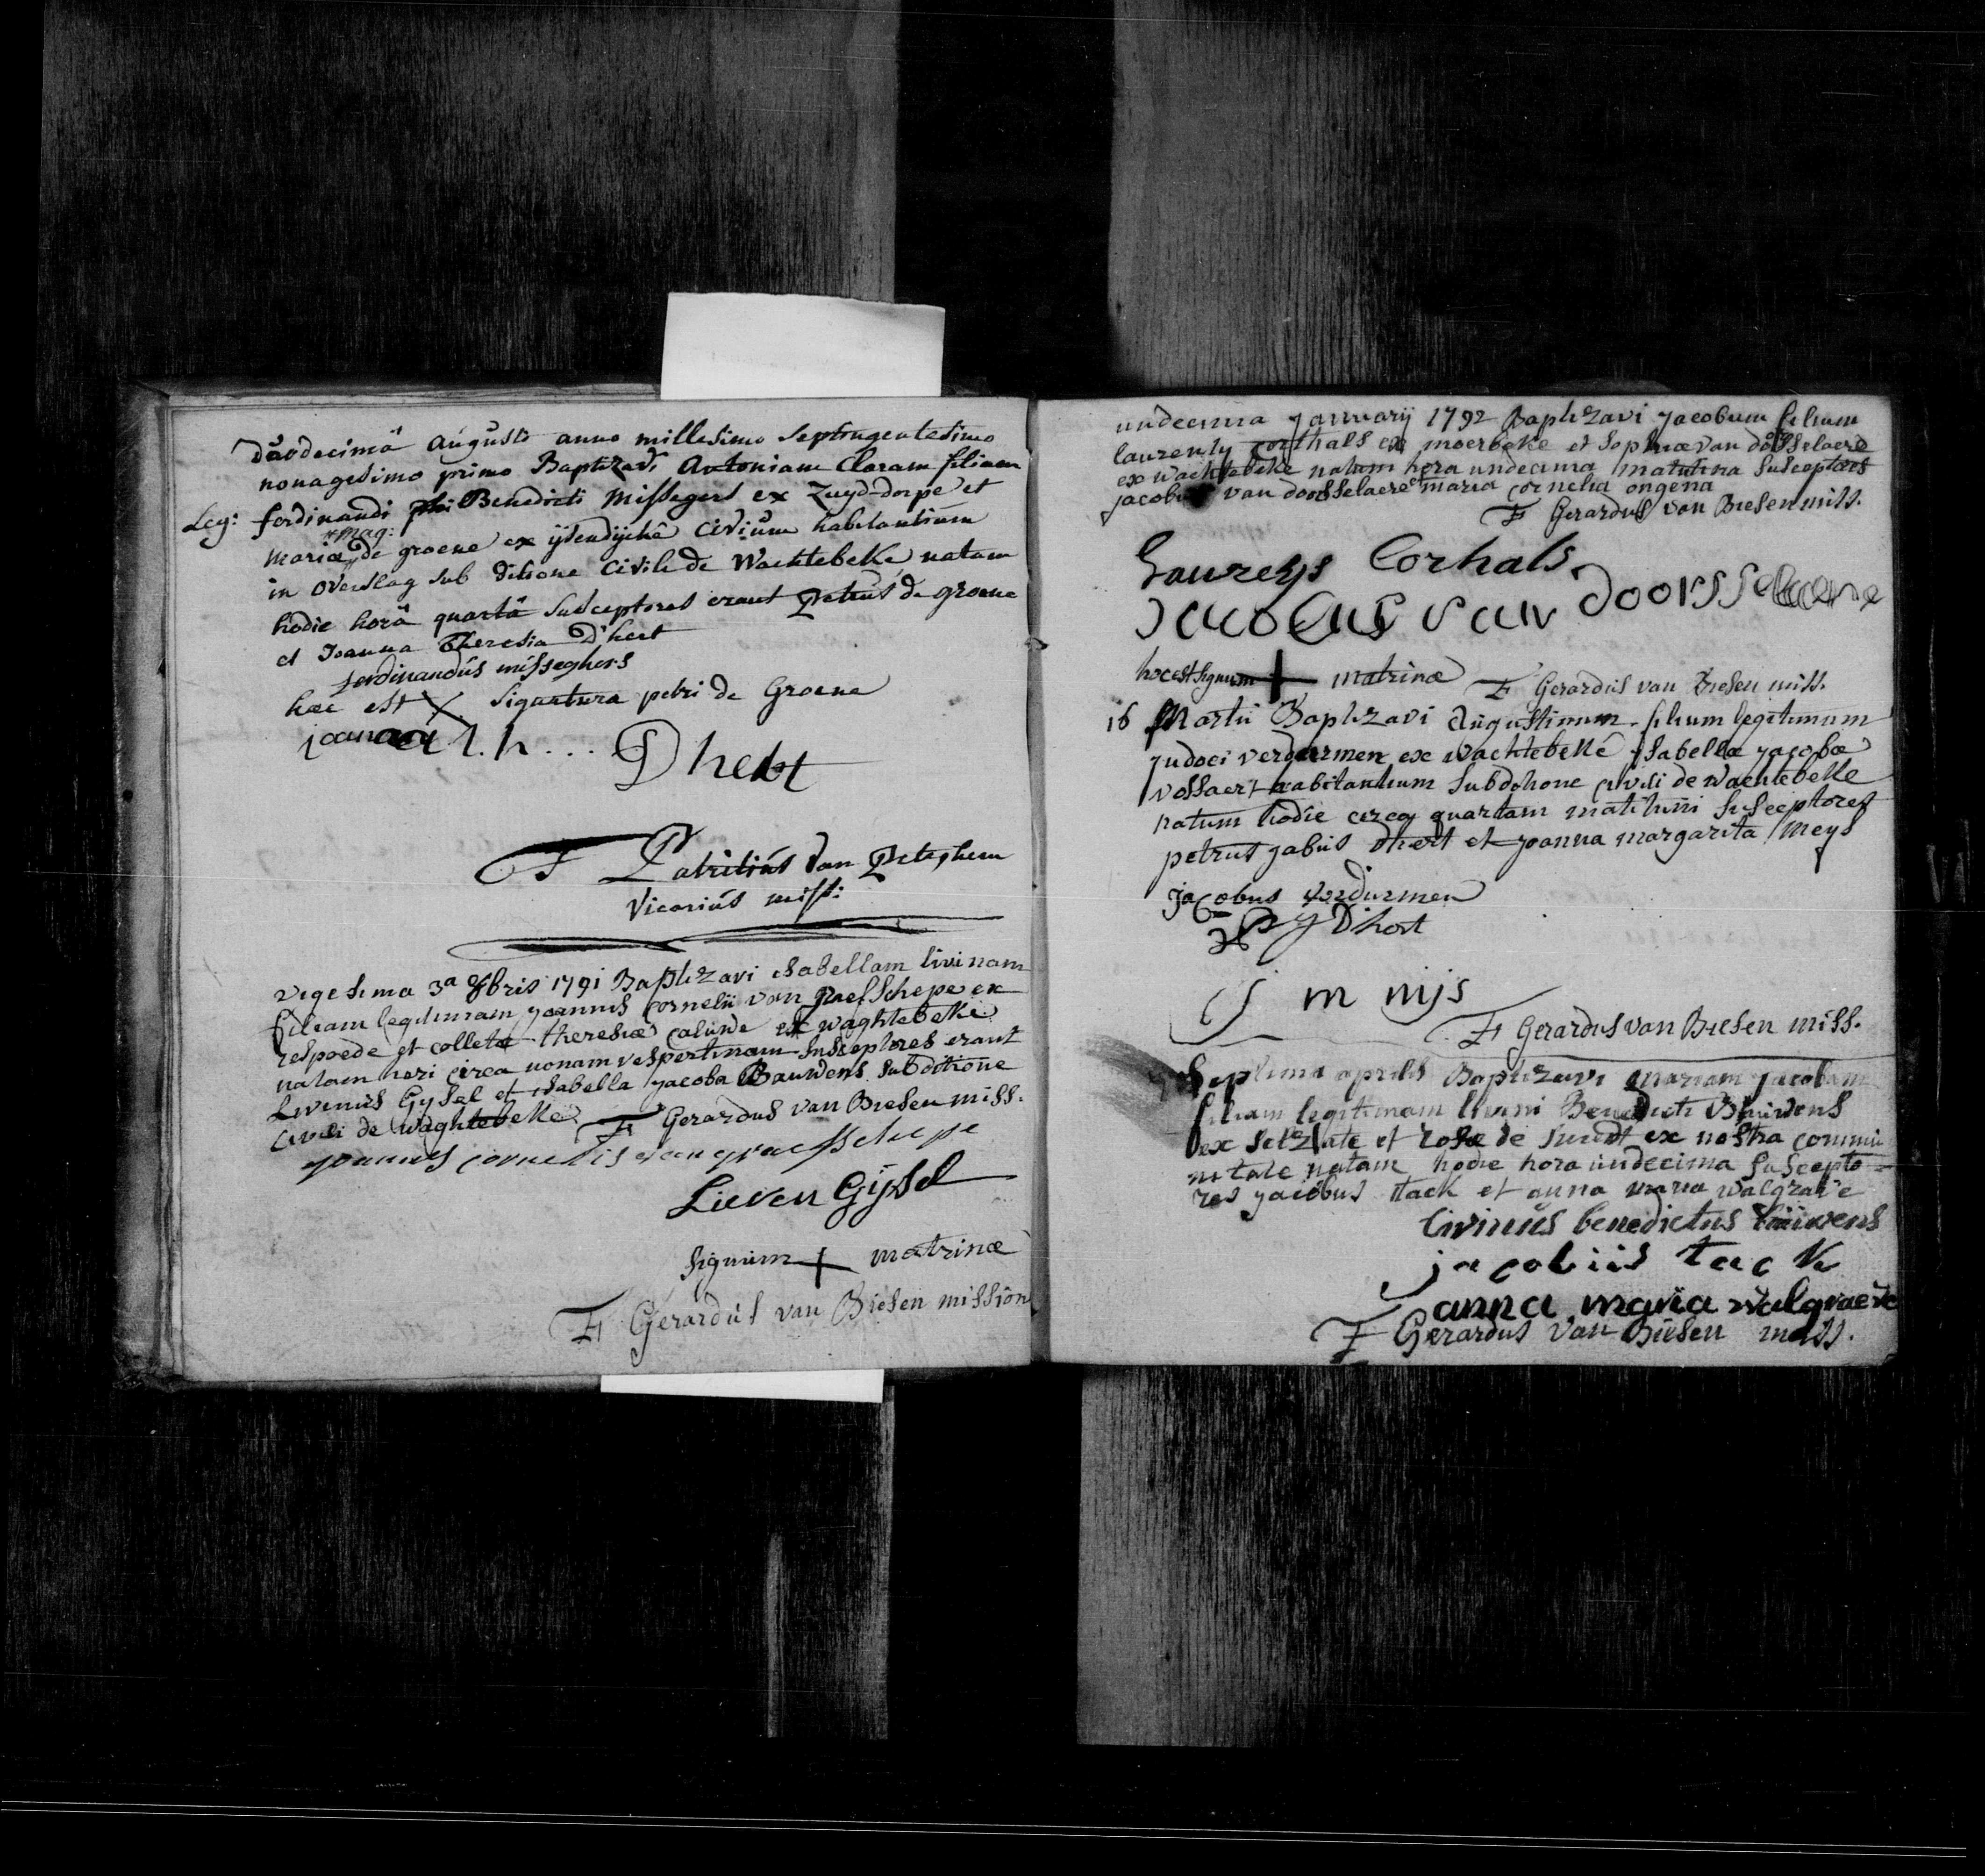 Duodecimâ augusti anno millesimo septingentesimo
nonagesimo primo Baptizavi Antoniam Claram filiam
Leg: ferdinandi Benedicti Missegers ex Zuyd-dorpe et
Mag:
Mariæ de groene ex ijsendijckê Civium habitantium
in overslag sub ditione Civili de Wachtebeke natam
hodie horâ quartâ susceptores erant Petrus de groene
et Joanna Theresia D'hert
ferdinandús misseghers
hæc est X signatura petri de Groene
joanna t. h... Dhert
F Patritiús Van Peteghem
Vicariús miss:
vigesima 3a 8bris 1791 Baptizavi isabellam livinam
filiam legitimam joannis Cornelii van Praesschepe ex
respoede et colletæ theresiæ calúwe ex waghtebeke
natam heri circa nonam vespertinam susceptores erant
Livinus Gysel et isabella jacoba Bauwens sub ditione
civili de waghtebeke. F Gerardus van Biesen miss.
joannes cornelis van praesschepe
Lieven Gijsel
signum + matrinæ
F Gerardús van Biesen mission
undecima january 1792 Baptizavi jacobum filium
laurenty corthals ex moerbeke et sophiæ van dosselaere
ex wachtebeke natum hora undecima matutina susceptores
jacobus van doorsselaere et maria cornelia ongena
F Gerardus van Biesen miss.
Laureys Corhals
Jacobus van doorsselaere
hoc est signum + matrinæ F Gerardús van Biesen miss.
16 Martii Baptizavi augustinum filium legitimum
judoci verdurmen ex wachtebekê isabellæ jacobæ
vossaert habitantium sub ditione civili de wachtebeke
natum hodie circa quartam matutini susceptores
petrus jabus dhert et joanna margarita Meys
jacobus verdurmen
P J D'hert
J m mijs
F Gerardus van Biesen miss.
Septima aprilis Baptizavi mariam jacobam
filiam legitimam livini Benedicti Bauwens
ex Selzate et rosæ de smedt ex nostra commu
nitate natam hodie hora úndecima suscepto=
res jacobus tack et anna maria walgrave
livinús benedictus baúwens
jacobús tack
anna maria walgraeve
F Gerardus Van Biesen miss.